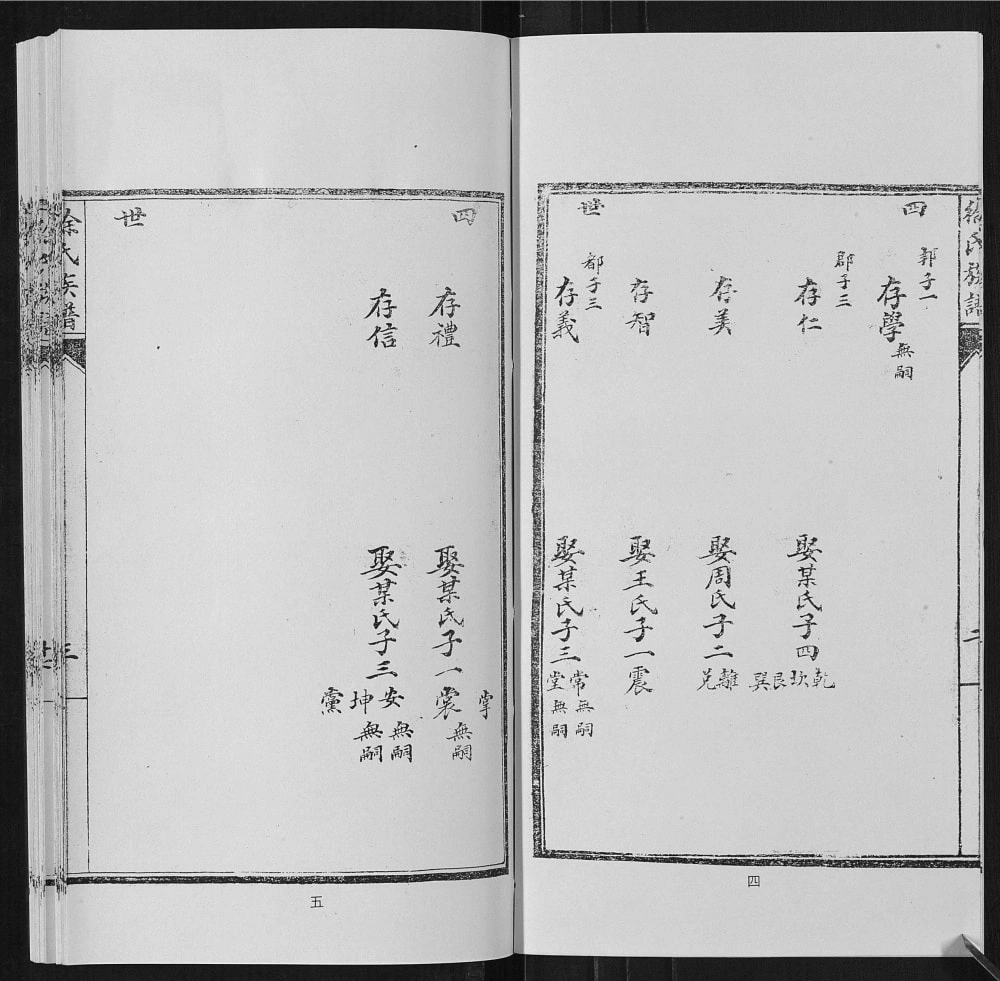 徐氏族譜
二
四
世
郭子一
存學
無嗣
郡子三
存仁
娶某氏子四
乾
坎
艮
巽
存美
娶周氏子二
離
兌
存智
娶王氏子一震
都子三
存義
娶某氏子三
常無嗣
堂無嗣
四
四
世
掌
存禮
娶某氏子一裳
無嗣
存信
娶某氏子三
安無嗣
坤無嗣
黨
徐氏族譜
三
五